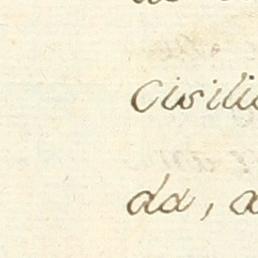 Civili
da, a